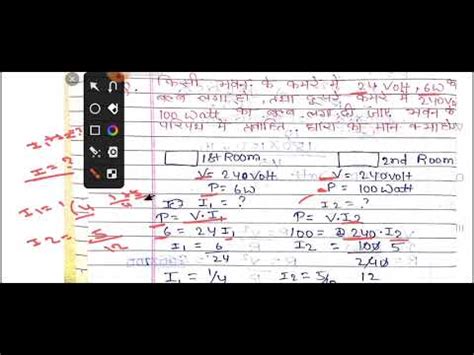 किसी भवन के कमरे में 24 Volt, 6W के
बल्ब लगा हो, तथा दूसरे कमरे में 240V
100 Watt का बल्ब लगा हो भवन के
परिपथ में धारा का मान
1st Room
2nd Room
V = 240 Volt
V = 240 Volt
P = 6W
P = 100 Watt
I₁ = ?
I₂ = ?
P = V·I₁
P = V·I₂
6 = 24 I₁
100 = 240·I₂
I₁ = 6
24
I₂ = 100 5
240 12
I₁ = 1/4
I₂ = 5/
I = ?
I₁ = 1/4
I₂ = 5
12